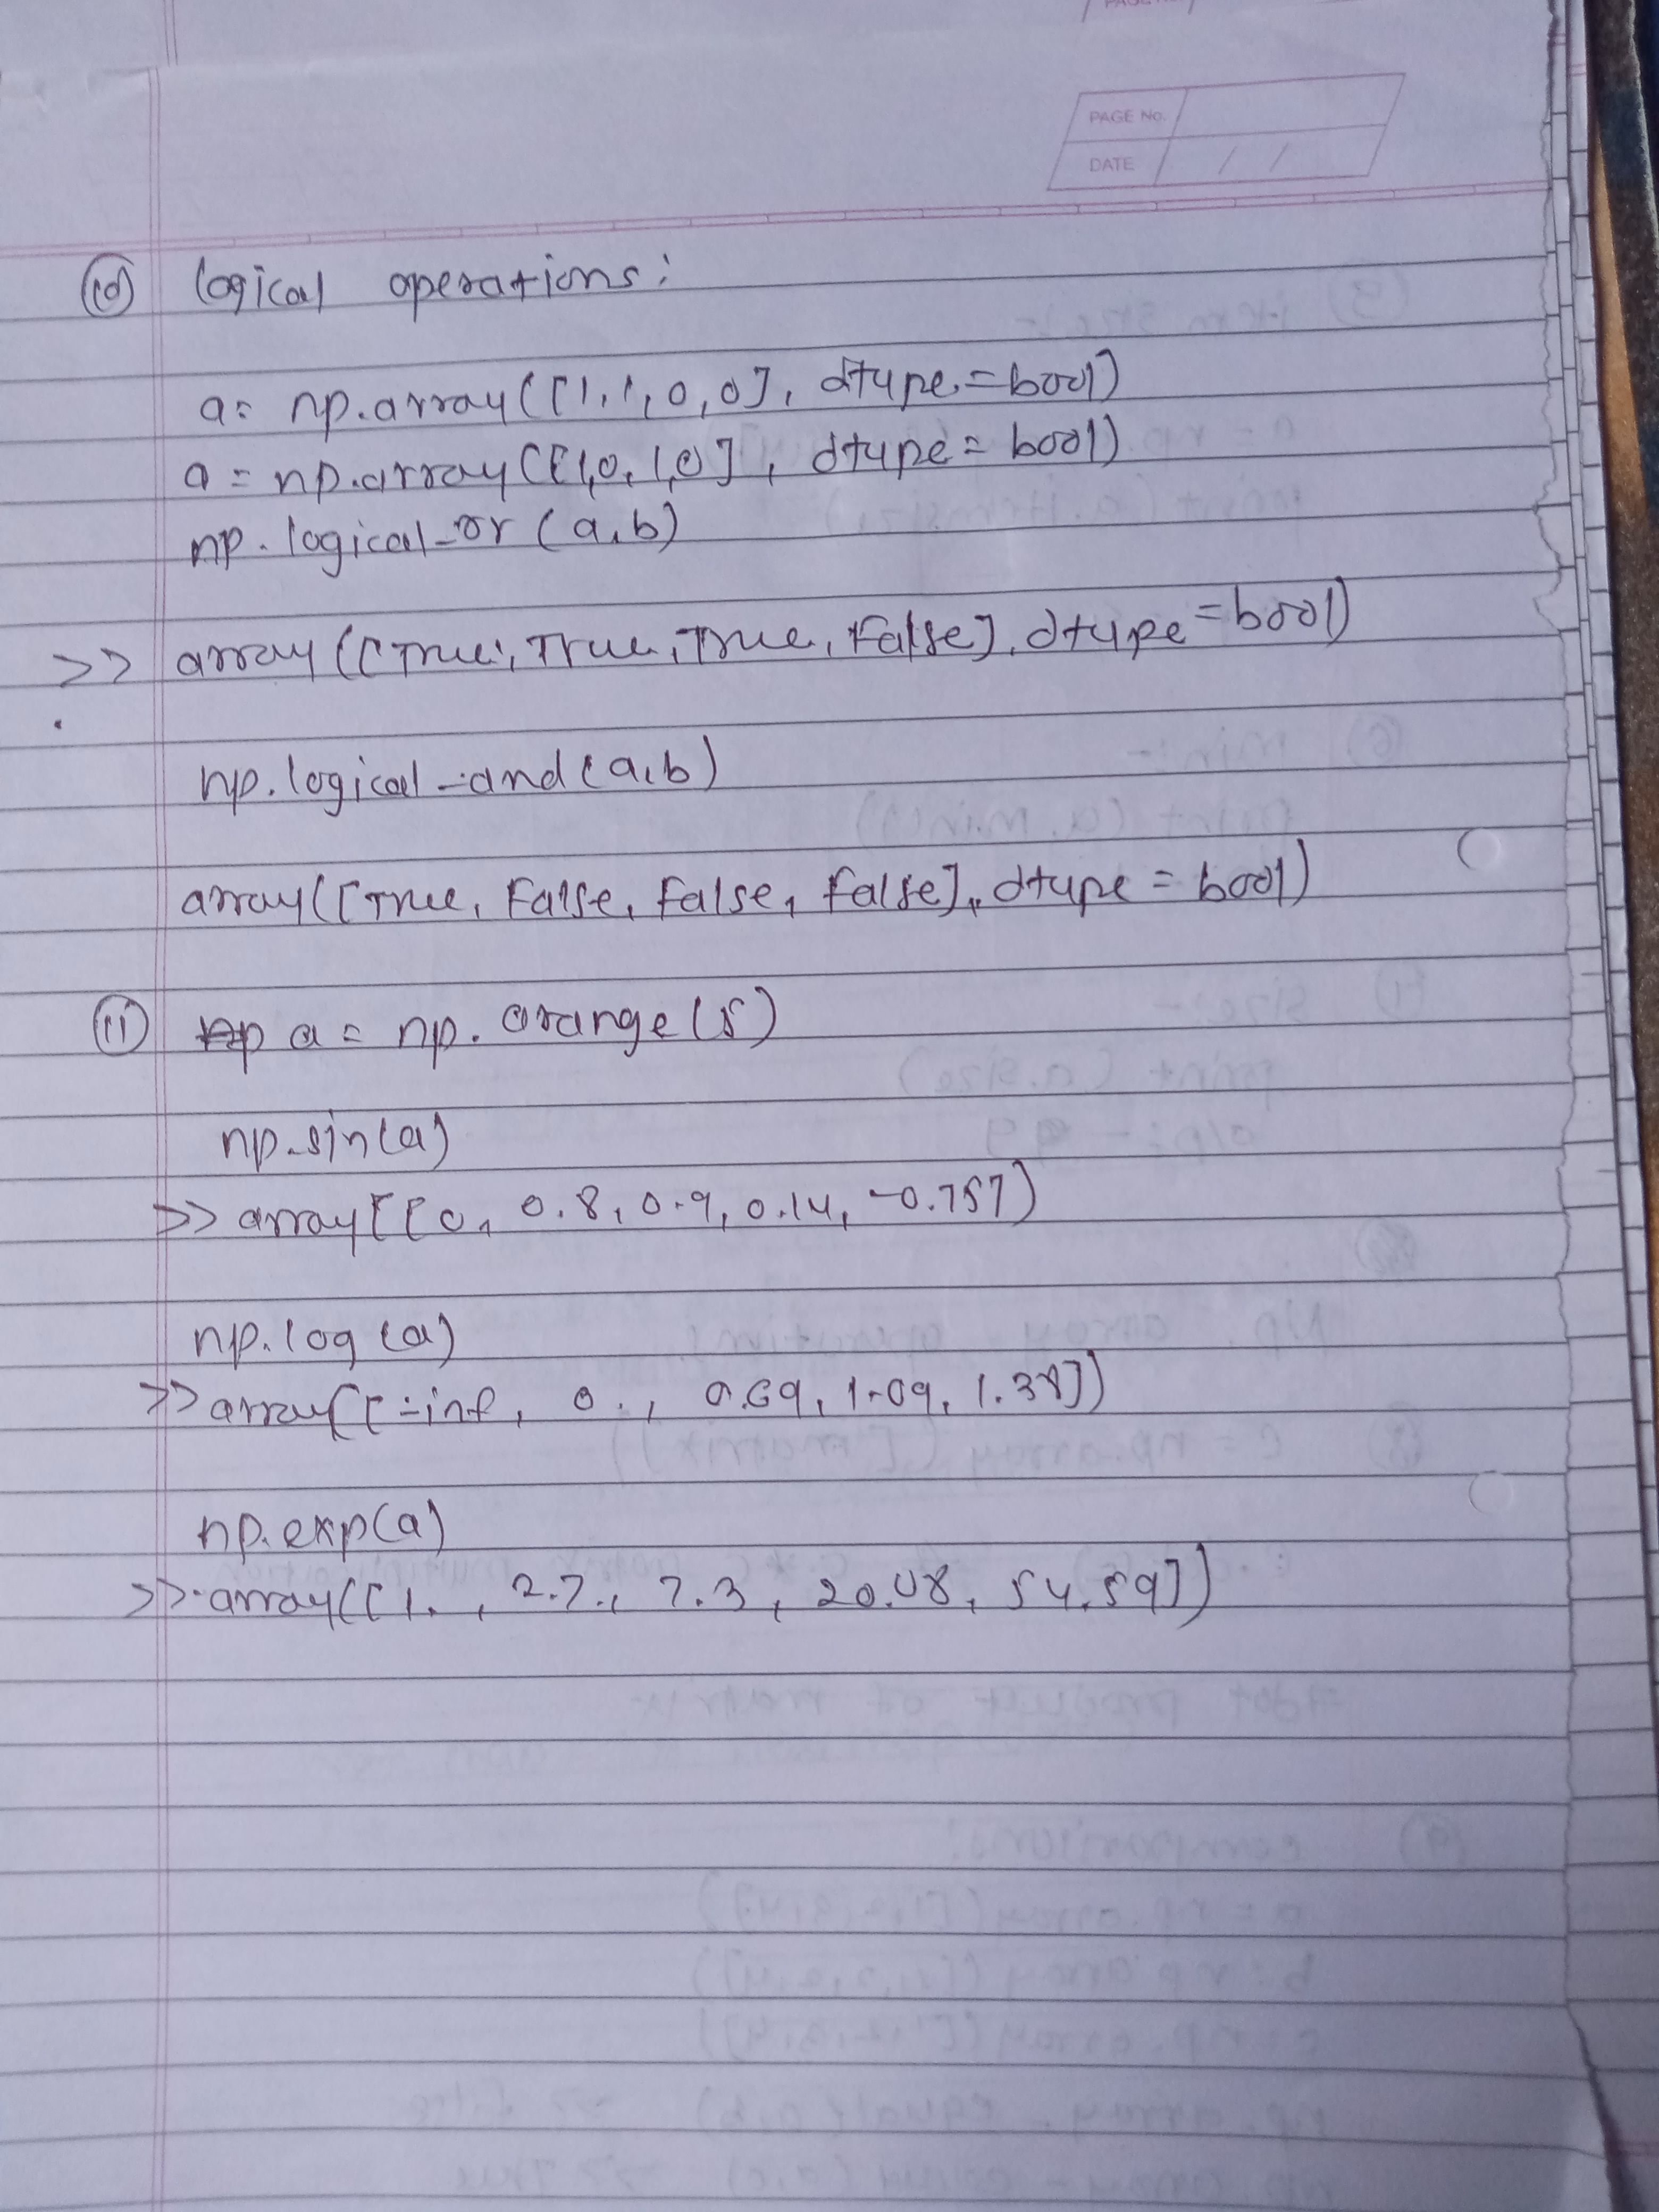 PAGE No.
DATE / /
(10) logical operations:
a= np.array([1,1,0,0], dtype=bool)
a = np.array([1,0,1,0], dtype = bool)
np.logical_or (a,b)
>> array([True, True, True, False], dtype=bool)
np.logical_and(a,b)
array([True, False, False, False], dtype = bool)
(11) a = np. arange(5)
np.sin(a)
>> array[[0, 0.8, 0.9, 0.14, -0.757)
np.log(a)
>> array([-inf, 0., 0.69, 1.09, 1.38])
np.exp(a)
>> array([1., 2.7, 7.3, 20.08, 54.59])